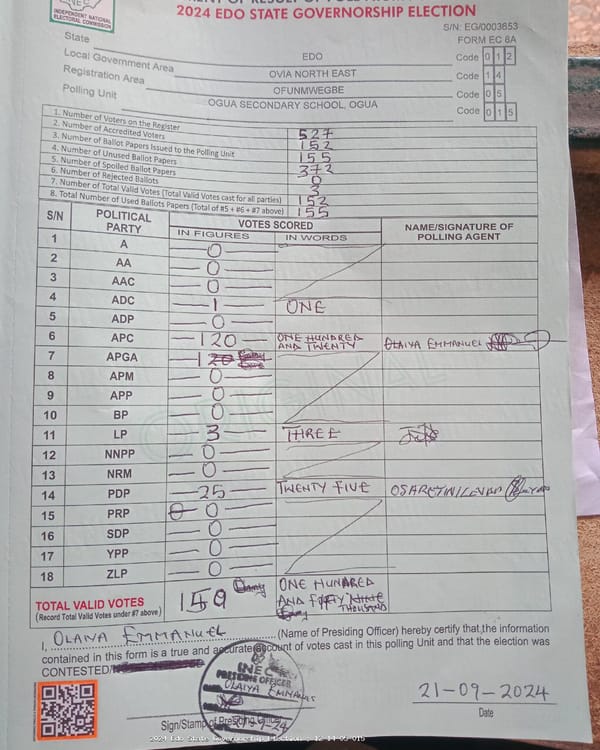 INDEPENDENT NATIONAL
ELECTORAL COMMISSION
2024 EDO STATE GOVERNORSHIP ELECTION
S/N: EG/0003653
FORM EC 8A
State EDO Code 0 1 2
Local Government Area OVIA NORTH EAST Code 1 4
Registration Area OFUNMWEGBE Code 0 5
Polling Unit OGUA SECONDARY SCHOOL, OGUA Code 0 1 5
1. Number of Voters on the Register 527
2. Number of Accredited Voters 152
3. Number of Ballot Papers Issued to the Polling Unit 155
4. Number of Unused Ballot Papers 372
5. Number of Spoiled Ballot Papers 0
6. Number of Rejected Ballots 3
7. Number of Total Valid Votes (Total Valid Votes cast for all parties) 152
8. Total Number of Used Ballots Papers (Total of #5 + #6 + #7 above) 155
S/N POLITICAL PARTY VOTES SCORED NAME/SIGNATURE OF POLLING AGENT
IN FIGURES IN WORDS
1 A 0
2 AA 0
3 AAC 0
4 ADC 1 ONE
5 ADP 0
6 APC 120 ONE HUNDRED AND TWENTY OLAIYA EMMANUEL
7 APGA 1
8 APM 0
9 APP 0
10 BP 0
11 LP 3 THREE
12 NNPP 0
13 NRM 0
14 PDP 25 TWENTY FIVE
15 PRP 0
16 SDP 0
17 YPP 0
18 ZLP 0
TOTAL VALID VOTES ONE HUNDRED
(Record Total Valid Votes under #7 above) AND
THOUSAND
I, OLAIYA EMMANUEL (Name of Presiding Officer) hereby certify that the information
contained in this form is a true and accurate account of votes cast in this polling Unit and that the election was
CONTESTED/
INEC
PRESIDING OFFICER
OLAIYA EMMANUEL
21-09-2024
Sign/Stamp of Presiding Date
2024 Edo State Governorship Election : 12-14-05-015